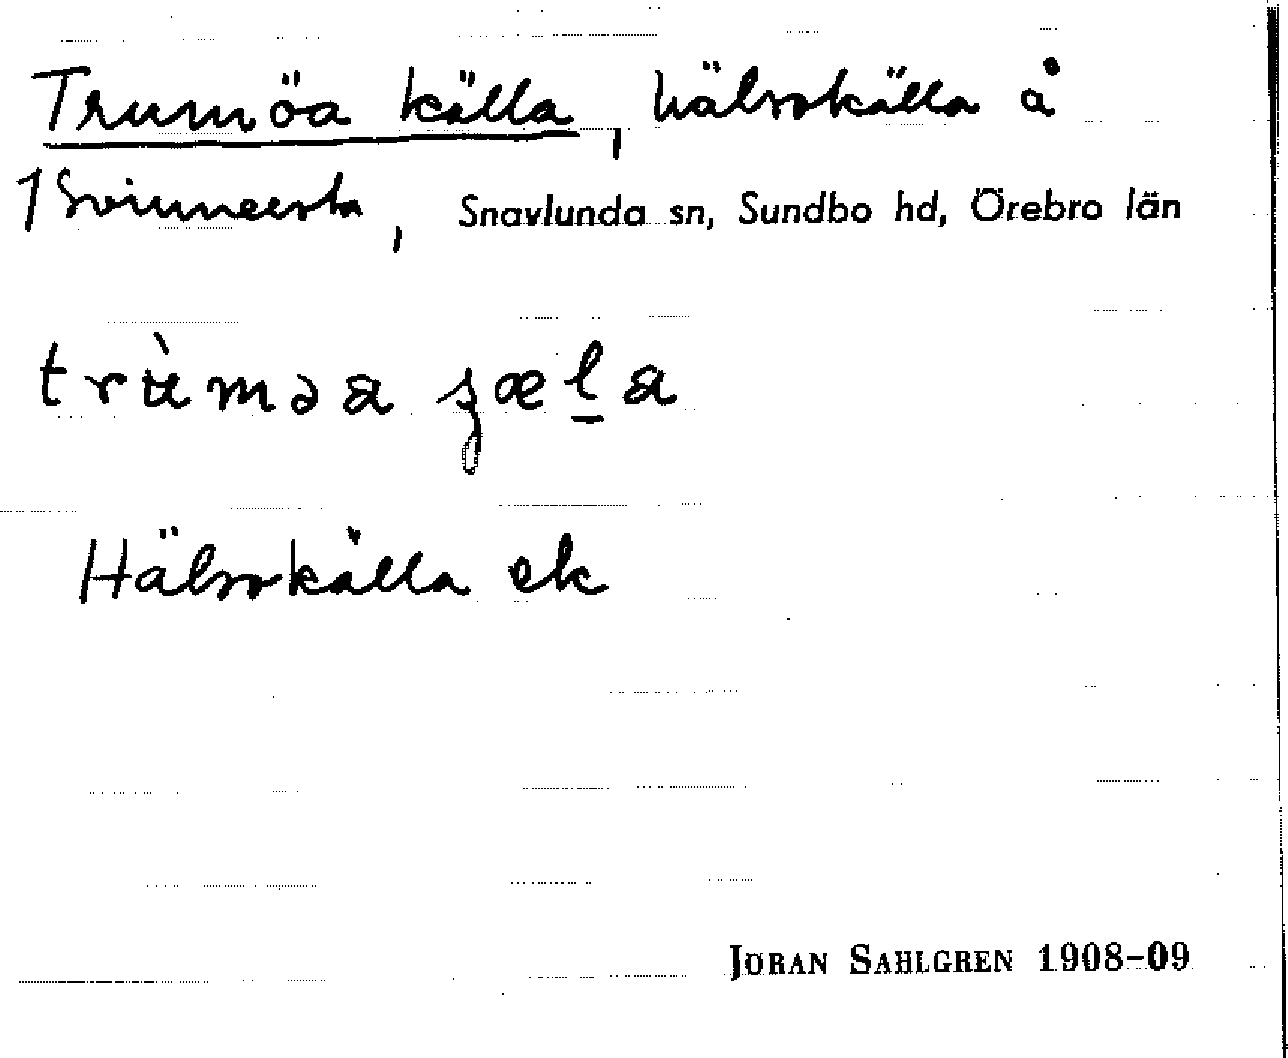 Trumöa källa, hälsokälla å
1 Svinnersta, Snavlunda sn, Sundbo hd, Örebro län
trùməa ʂæḻa
Hälsokälla ek
JÖRAN SAHLGREN 1908–09